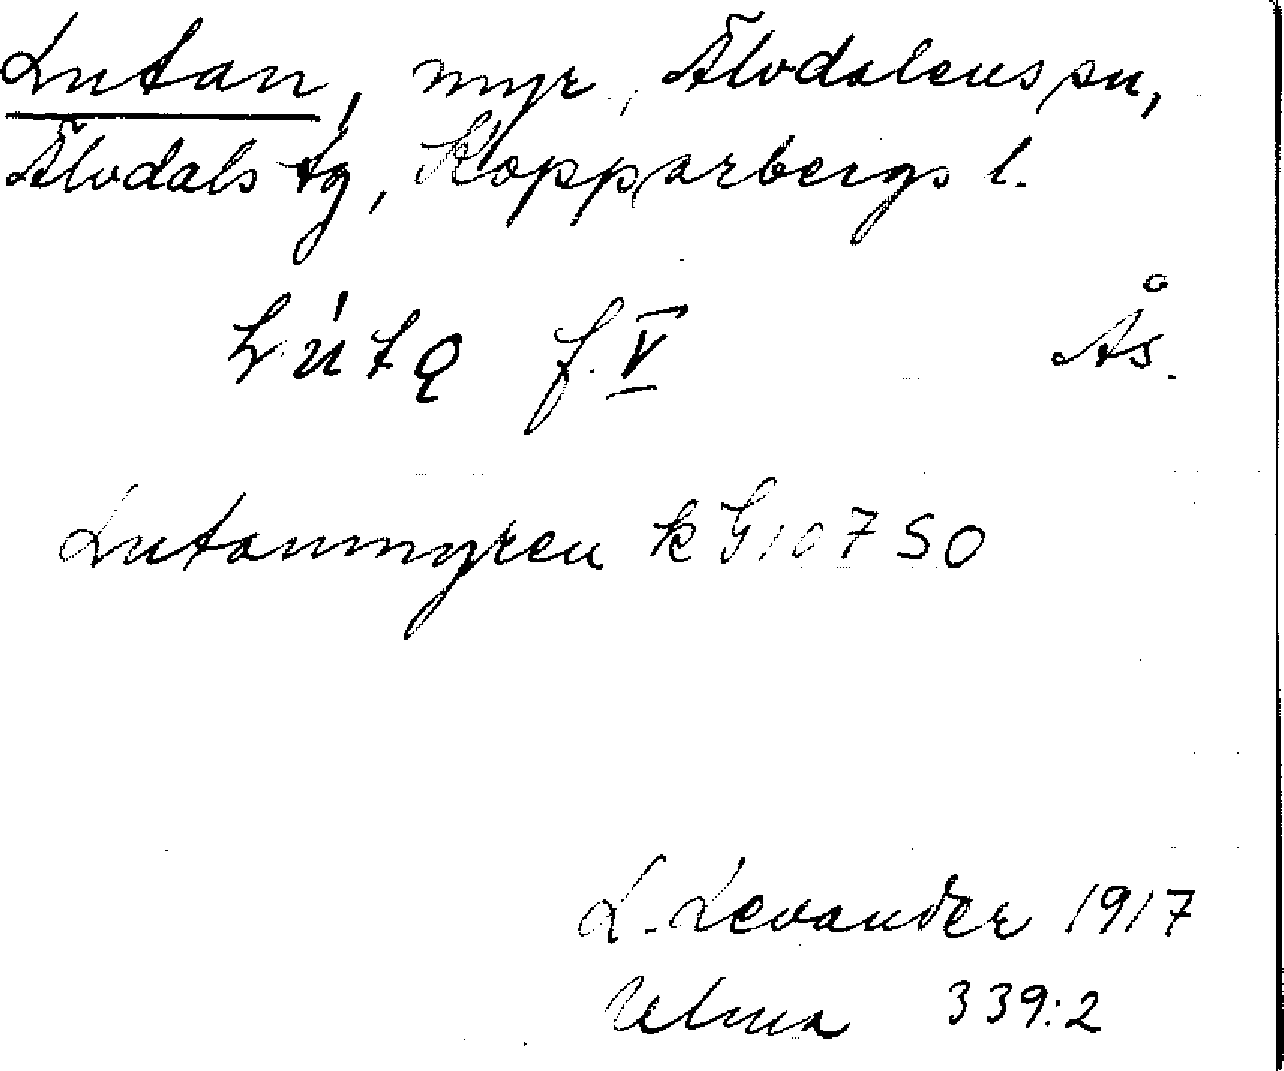 Lutan, myr, Älvdalens sn,
Älvdals tg, Kopparbergs l.
Lútą f. V Ås.
Lutanmyren k G10750
L. Levander 1917
Ulma 339:2